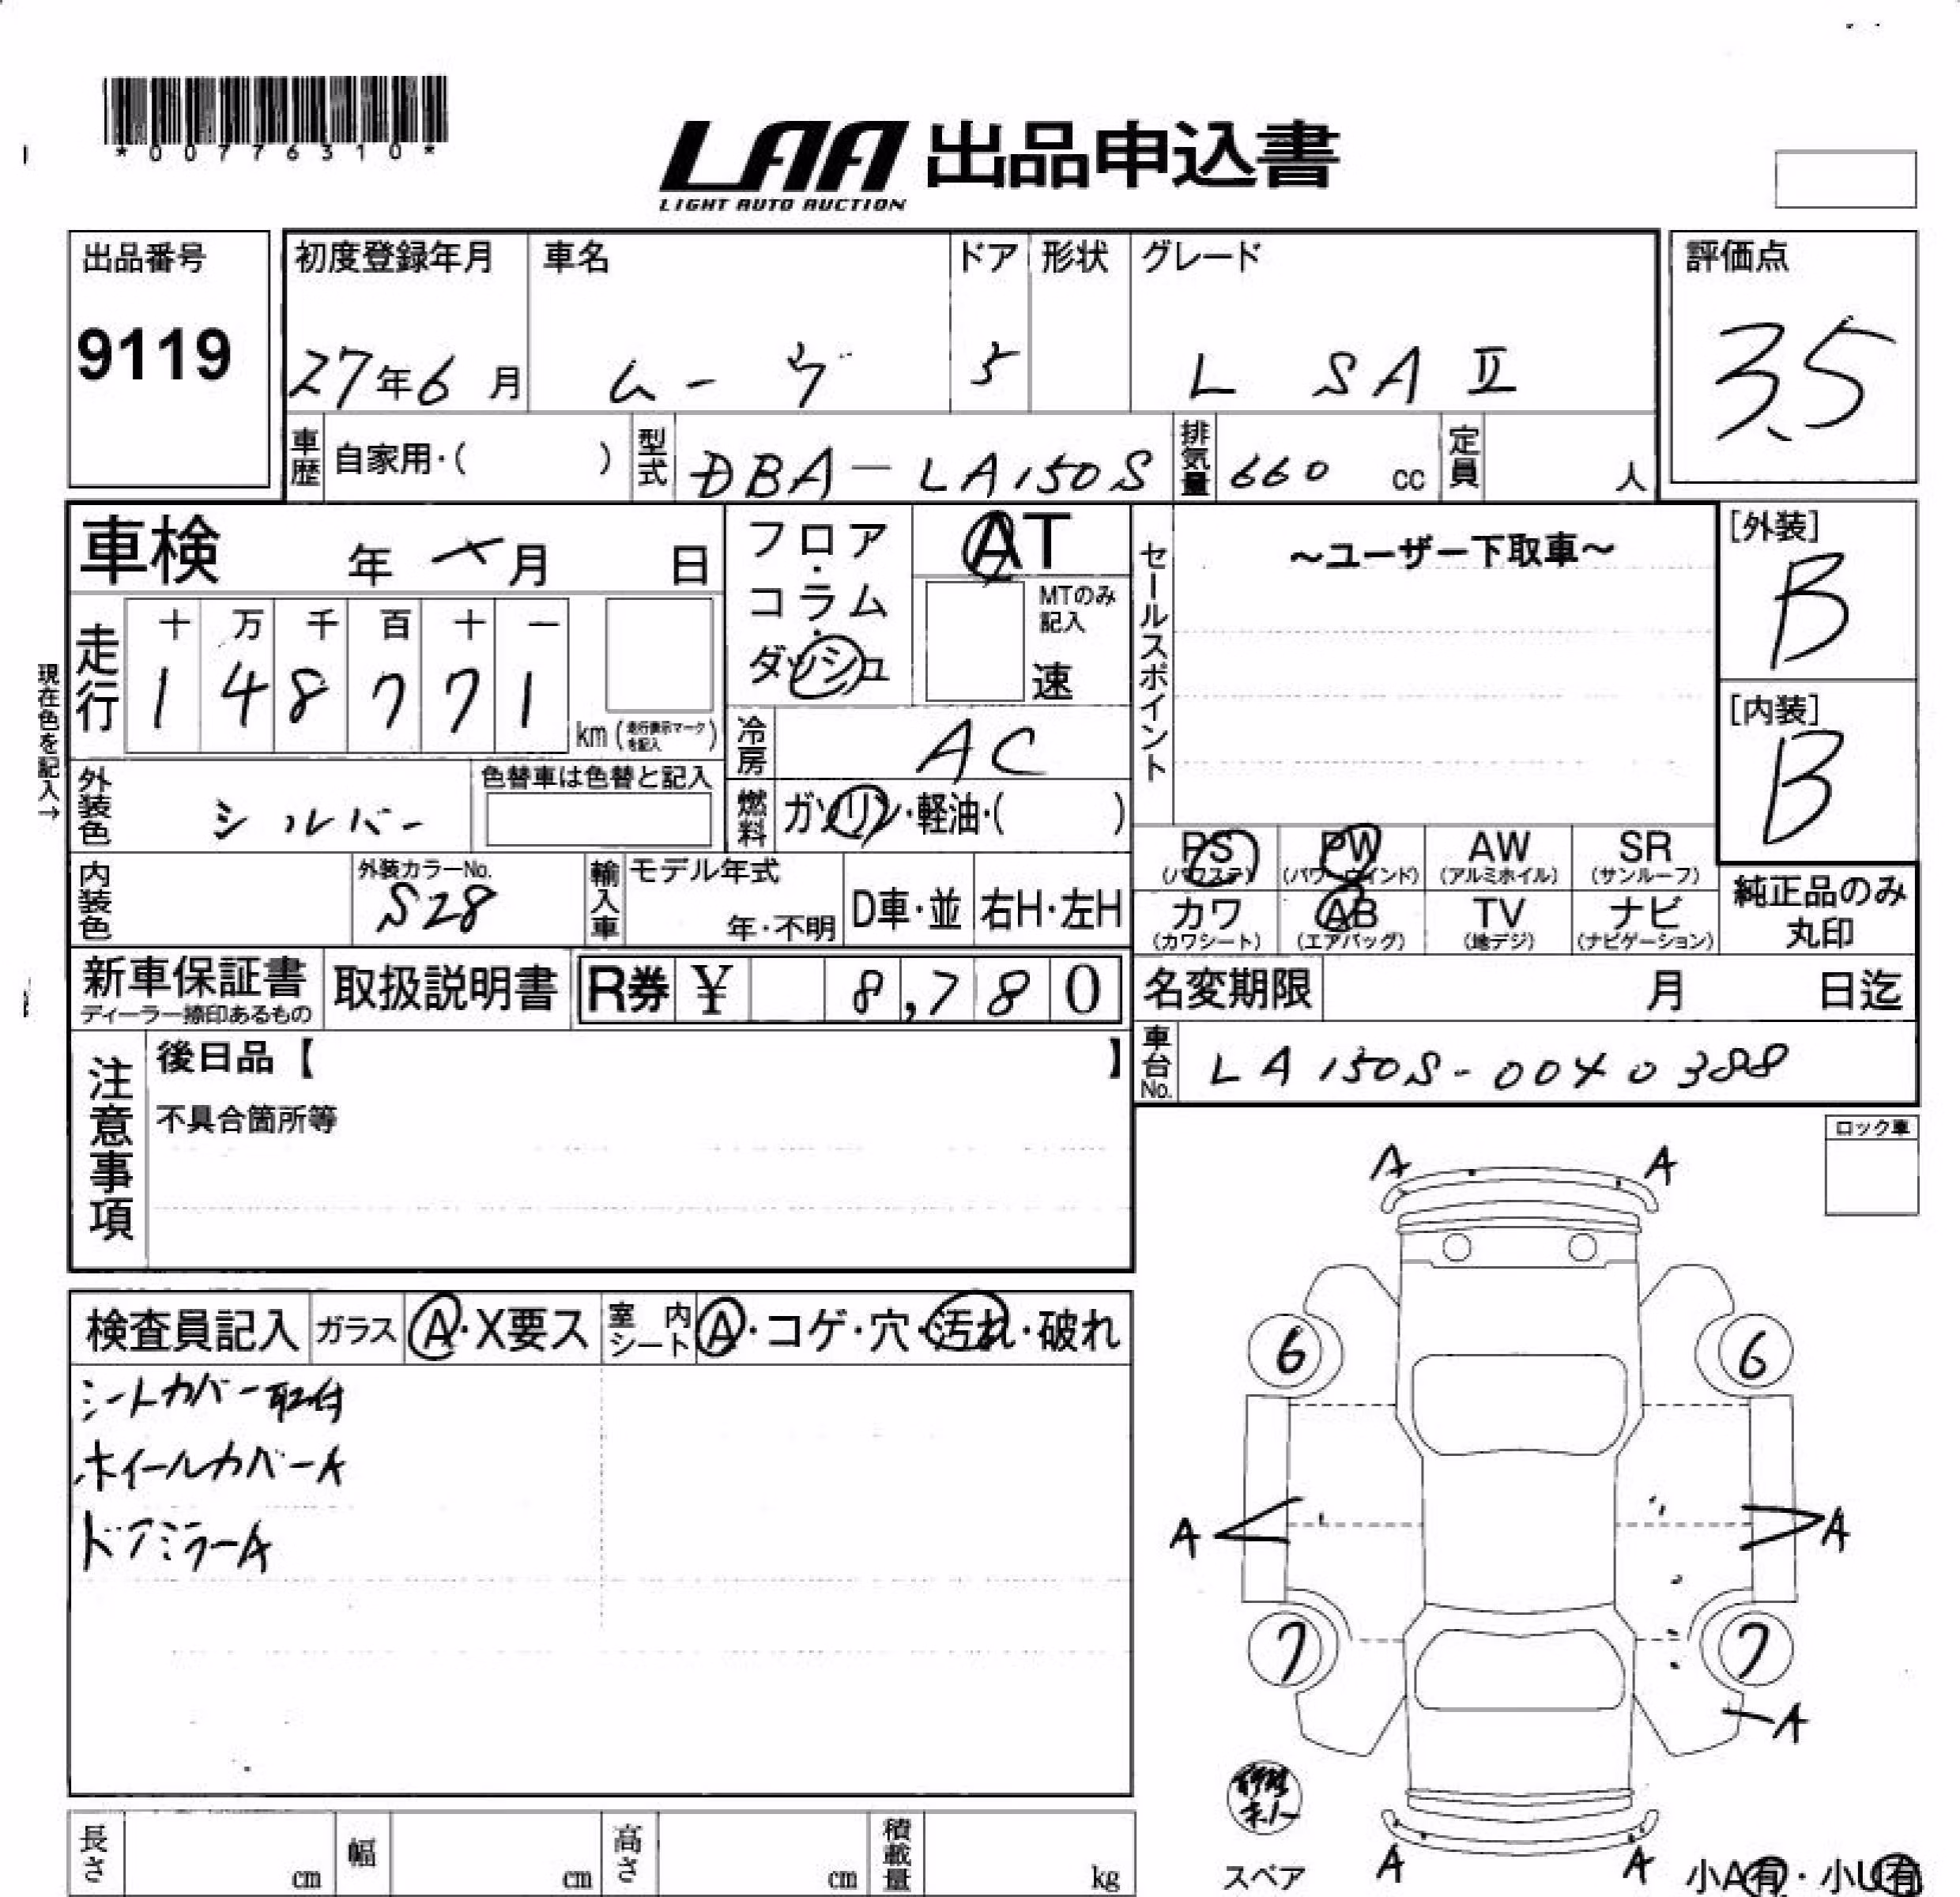 *00776310*
LAA 出品申込書
LIGHT AUTO AUCTION
出品番号
9119
初度登録年月
27年6月
車名
ムーヴ
ドア
5
形状
グレード
L SAⅡ
評価点
3.5
車歴
自家用・( )
型式
DBA-LA150S
排気量
660 cc
定員
人
車検 年 月 日
フロア・コラム・ダッシュ
AT
MTのみ記入
速
セールスポイント
~ユーザー下取車~
[外装]
B
[内装]
B
現在色を記入→
走行
十 万 千 百 十 一
1 4 8 7 7 1
km (走行表示マークを記入)
冷房
AC
外装色
シルバー
色替車は色替と記入
燃料
ガソリン・軽油・( )
PS (パワステ)
PW (パワーウインド)
AW (アルミホイル)
SR (サンルーフ)
カワ (カワシート)
AB (エアバッグ)
TV (地デジ)
ナビ (ナビゲーション)
純正品のみ丸印
内装色
外装カラーNo.
S28
輸入車
モデル年式
年・不明
D車・並
右H・左H
新車保証書
ディーラー捺印あるもの
取扱説明書
R券 ¥ 8,780
名変期限 月 日迄
車台No.
LA150S-0040388
注意事項
後日品【 】
不具合箇所等
ロック車
A A
検査員記入
ガラス
A・X要ス
室内シート
A・コゲ・穴・汚れ・破れ
シートカバー取付
ホイールカバーA
ドアミラーA
6 6
A A
7 7
A
スペア
A A
小A有・小U有
長さ cm
幅 cm
高さ cm
積載量 kg